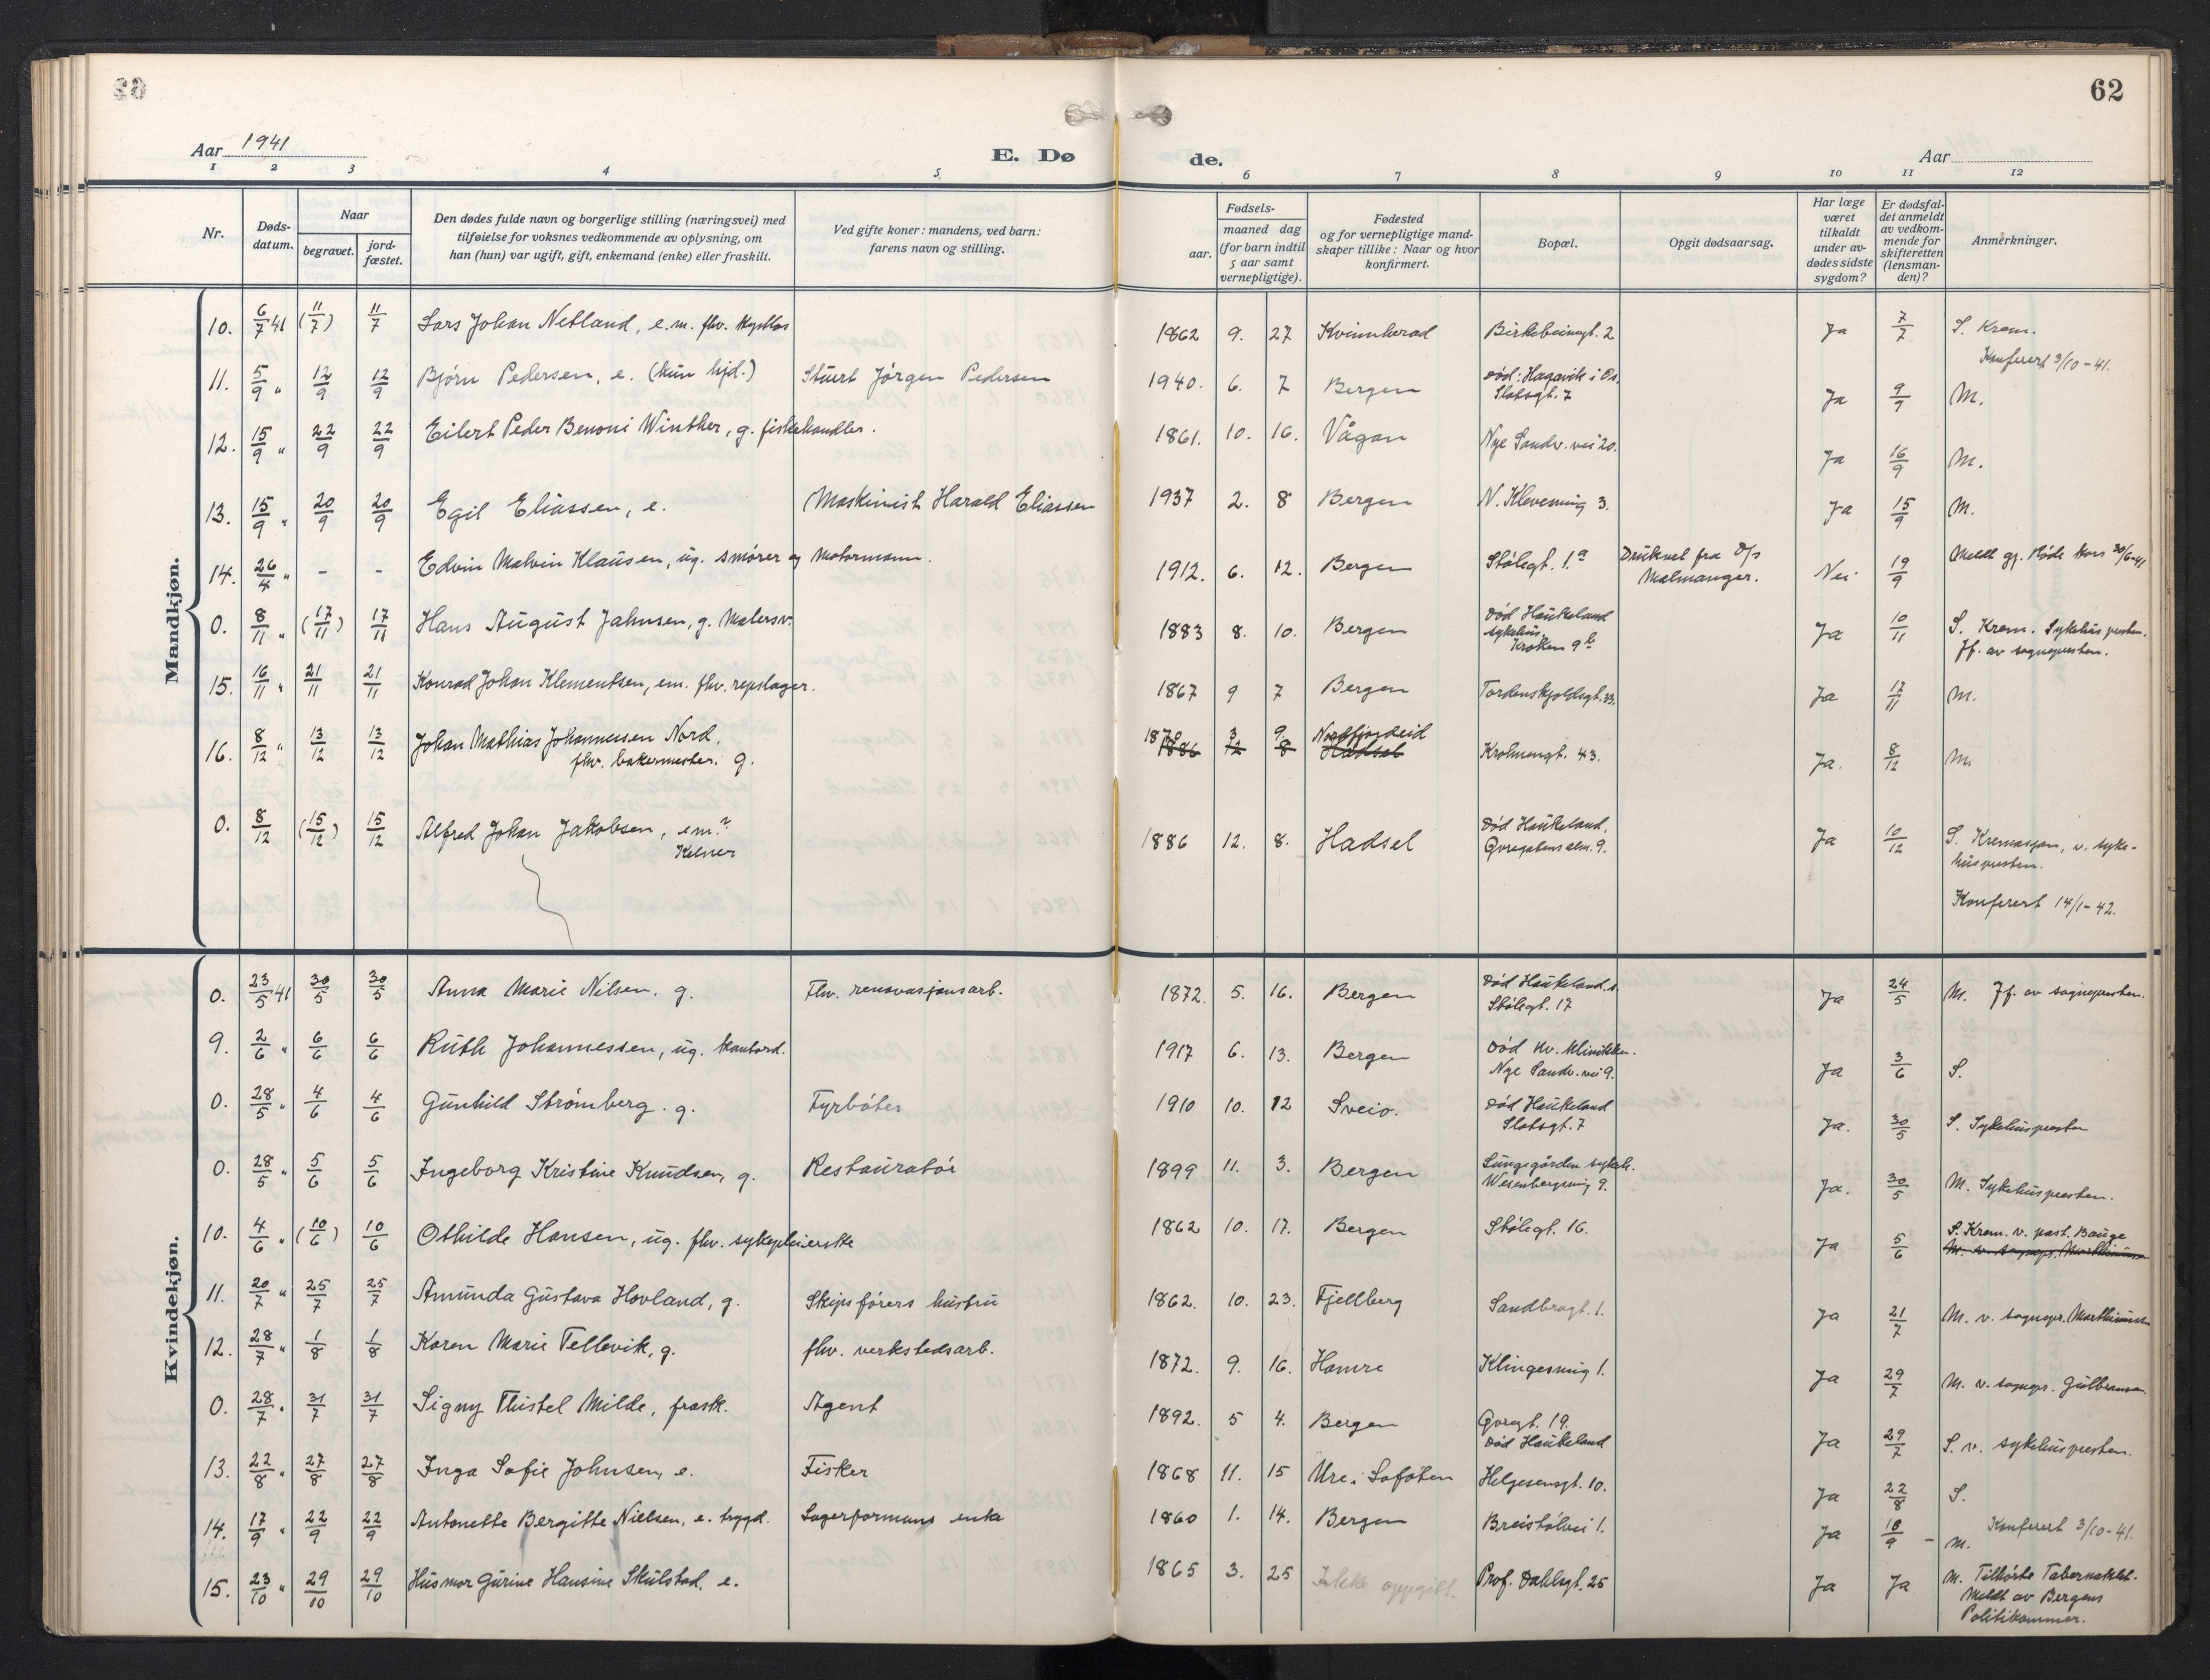 62
Aar 1941
E. Dø de.
Aar
1 2 3 4 5. 6 7 8 9 10 11 12
Nr.
Døds-
datum.
Naar
begravet.
jord-
fæstet.
Den dødes fulde navn og borgerlige stilling (næringsvei) med
tilføielse for voksnes vedkommende av oplysning, om
han (hun) var ugift, gift, enkemand (enke) eller fraskilt.
Ved gifte koner: mandens, ved barn:
farens navn og stilling.
Fødsels-
aar.
maaned dag
(for barn indtil
5 aar samt
vernepligtige).
Fødested
og for vernepligtige mand-
skaper tillike: Naar og hvor
konfirmert.
Bopæl.
Opgit dødsaarsag.
Har læge
været
tilkaldt
under av-
dødes sidste
sygdom?
Er dødsfal-
det anmeldt
av vedkom-
mende for
skifteretten
(lensman-
den)?
Anmerkninger.
Mandkjøn.
10. 6/7 41 (11/7) 11/7 Lars Johan Netland, e.m. fhv. 1862 9. 27 Kvinnherad Birkebeinergt. 2 Ja 7/7 S. Krem.
Konferert 3/10-41.
11. 5/9 " 12/9 12/9 Bjørn Pedersen, e. (kun hjd.) Stuert Jørgen Pedersen 1940. 6. 7 Bergen Død: Hagavik i Os.
Slotsgt. 7 Ja 9/9 M.
12. 15/9 " 22/9 22/9 Eilert Peder Benoni Winther, g. fiskehandler. 1861. 10. 16. Vågan Nye Sandv. vei 20. Ja 16/9 M.
13. 15/9 " 20/9 20/9 Egil Eliassen, e. (Maskinist Harald Eliassen 1937 2. 8 Bergen N. Kleivesmug 3. Ja 15/9 M.
14. 26/4 " - - Edvin Malvin Klausen, ug. smører og Motormann. 1912. 6. 12. Bergen Stølegt. 1.a Druknet fra D/s
Malmanger. Nei 19/9 Meldt gj. Røde Kors 30/6-41
0. 8/11 " (17/11) 17/11 Hans August Jahnsen, g. Malersv. 1883 8. 10. Bergen Død Haukeland
sykehus.
Kroken 9b Ja 10/11 S. Krem. Sykehuspresten.
Jf. av sognepresten.
15. 16/11 " 21/11 21/11 Konrad Johan Klementsen, em. fhv. repslager. 1867 9 7 Bergen Tordenskjoldsgt. 33. Ja 17/11 M.
16. 8/12 " 13/12 13/12 Johan Mathias Johannessen Nord,
fhv. bakermester. g. 1870 1886 3 12 9 8 Nordfjordeid
Hadsel Krohnengt. 43. Ja. 8/12 M.
0. 8/12 (15/12) 15/12 Alfred Johan Jakobsen, em.?
Kelner 1886 12. 8. Hadsel Død Haukeland.
Øvregatens alm. 9. Ja 10/12 S. Kremasjon, v. syke-
huspresten.
Konferert 14/1-42.
Kvindekjøn.
0. 23/5 41 30/5 30/5 Anna Marie Nilsen. g. Fhv. renovasjonsarb. 1872. 5. 16. Bergen Død Haukeland s.
Stølegt. 17 Ja 24/5 M. Jf. av sognepresten.
9. 2/6 " 6/6 6/6 Ruth Johannessen, ug. kontord. 1917 6. 13. Bergen Død Kv. klinikken.
Nye Sandv. vei 9. Ja 3/6 S.
0. 28/5 " 4/6 4/6 Gunhild Strømberg. g. Fyrbøter 1910 10. 12 Sveio. Død Haukeland
Slotsgt. 7 Ja. 30/5 S. Sykehuspresten
0. 28/5 " 5/6 5/6 Ingeborg Kristine Knudsen, g. Restauratør 1899 11. 3. Bergen Lungegården sykeh.
Wesenbergsmug 9. Ja. 30/5 M. Sykehuspresten.
10. 4/6 " (10/6) 10/6 Othilde Hansen, ug. fhv. sykepleierske 1862 10. 17. Bergen Stølegt. 16. Ja 5/6 S. Krem. v. past. Bauge
M. v. sognepr. Marthinussen
11. 20/7 " 25/7 25/7 Amunda Gustava Hovland, g. Skipsførers hustru 1862. 10. 23. Fjellberg Sandbrogt. 1. Ja 21/7 M. v. sognepr. Marthinussen
12. 28/7 " 1/8 1/8 Karen Marie Tellevik, g. fhv. verkstedsarb. 1872. 9. 16. Hamre Klingesmug 1. Ja 29/7 M. v. sognepr. Gulbransen.
0. 28/7 " 31/7 31/7 Signy Thistel Milde, frask. Agent 1892. 5 4. Bergen Øvregt. 19.
Død Haukeland Ja 29/7 S. v. sykehuspresten.
13. 22/8 " 27/8 27/8 Inga Sofie Johnsen, e. Fisker 1868 11. 15 Ure i Lofoten Helgesensgt. 10. Ja 22/8 S.
14. 17/9 " 22/9 22/9 Antonette Bergitte Nielsen, e. trygd. Lagerformans enke 1860 1. 14. Bergen Breistølvei 1. Ja 18/9 - M. Konferert 3/10-41.
15. 23/10 " 29/10 29/10 Husmor Gurine Hansine Skulstad, e. 1865 3. 25 Ikke oppgitt. Prof. Dahlsgt. 25 Ja Ja M. Tilhørte Tabernaklet.
Meldt av Bergens
Politikammer.